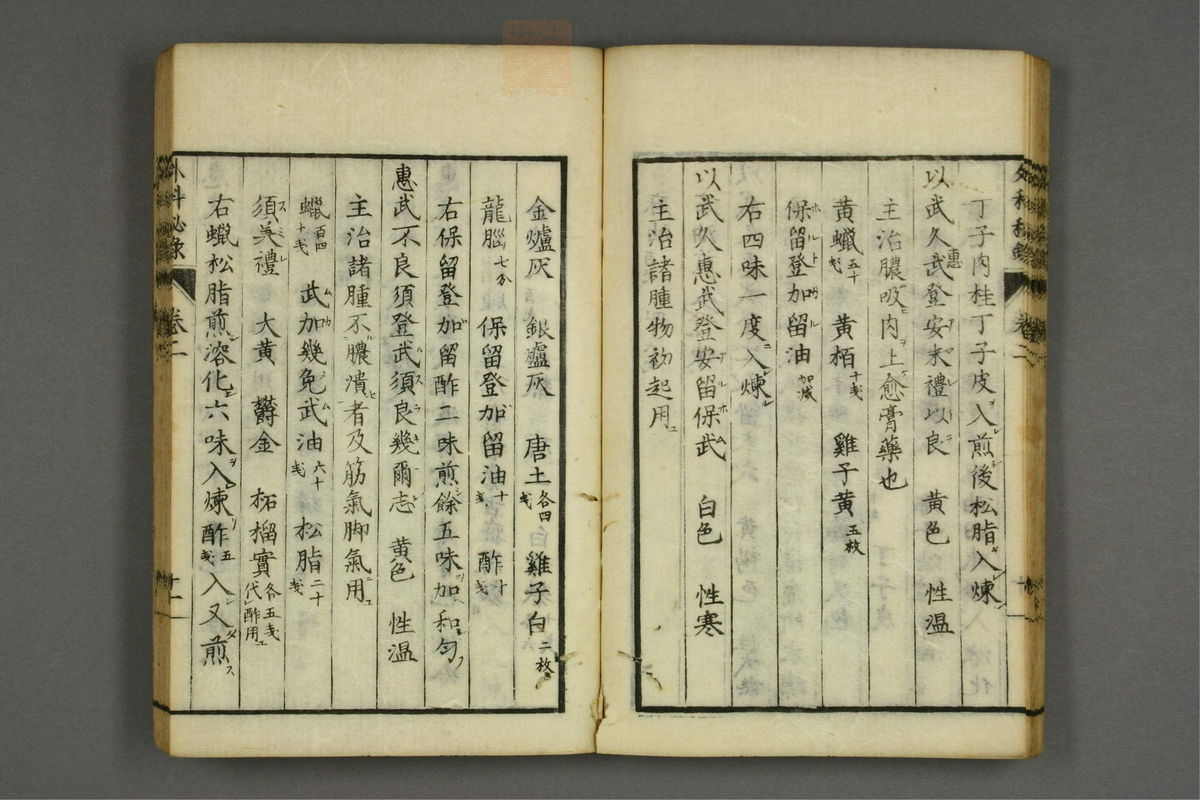 丁子肉桂丁子皮入煎後松脂入煉
以武久惠武登安末禮以良　黃色　性温
主治膿吸肉上愈膏藥也
黃蠟五十戔　黃栢十戔　雞子黃五枚
保留登加留油加減
右四味一度入煉
以武久惠武登安留保武　白色　性寒
主治諸腫物初起用
金爐灰　銀爐灰　唐土各四戔　雞子白二枚
龍腦七分　保留登加留油十戔　酢十戔
右保留登加留酢二味煎餘五味加和匀
惠武不良須登武須良幾爾志　黃色　性温
主治諸腫不膿潰者及筋氣脚氣用
蠟百四十戔　武加幾免武油六十戔　松脂二十戔
須美禮　大黃　欝金　柘榴實各五戔代酢用
右蠟松脂煎溶化六味入煉酢五戔入又煎
外科秘錄　卷二　十一